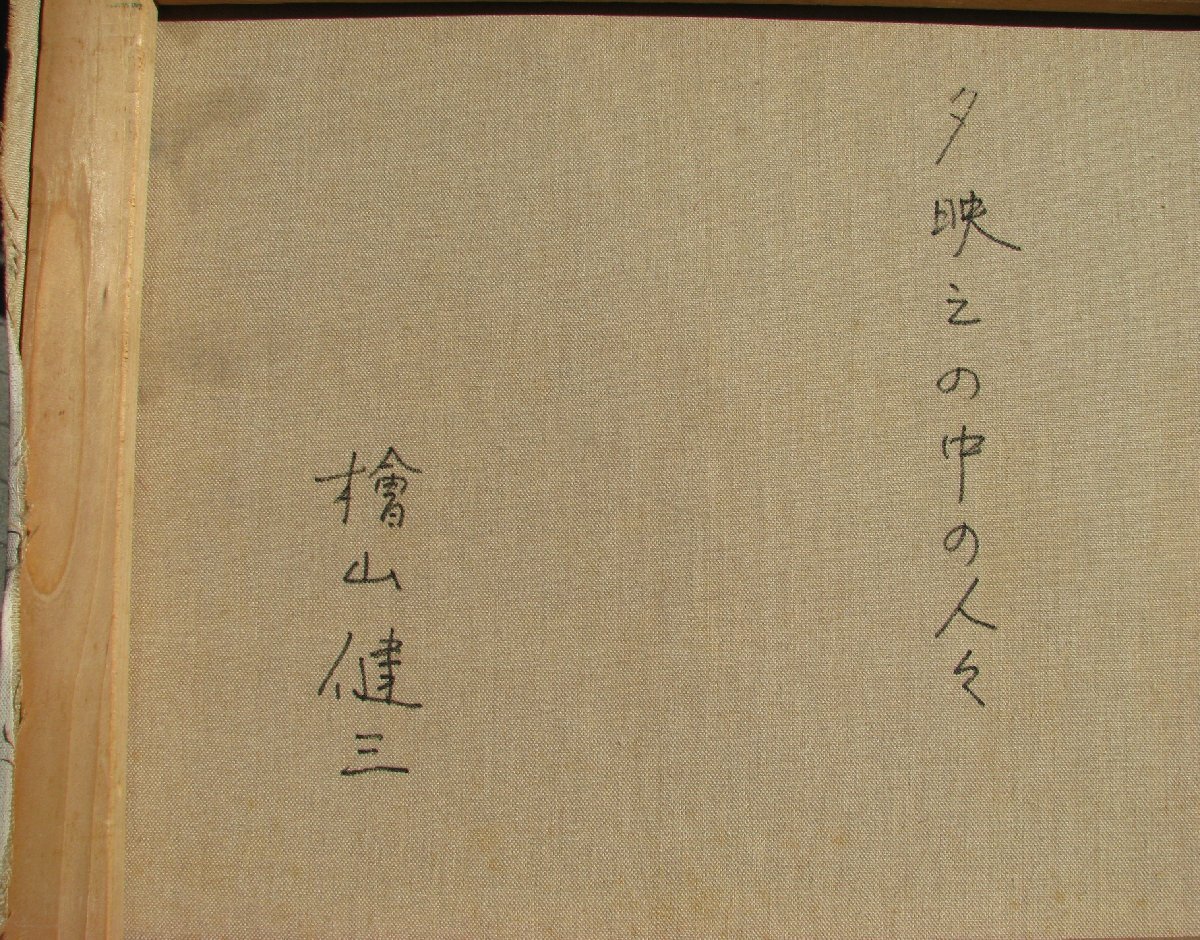 夕映えの中の人々
檜山健三